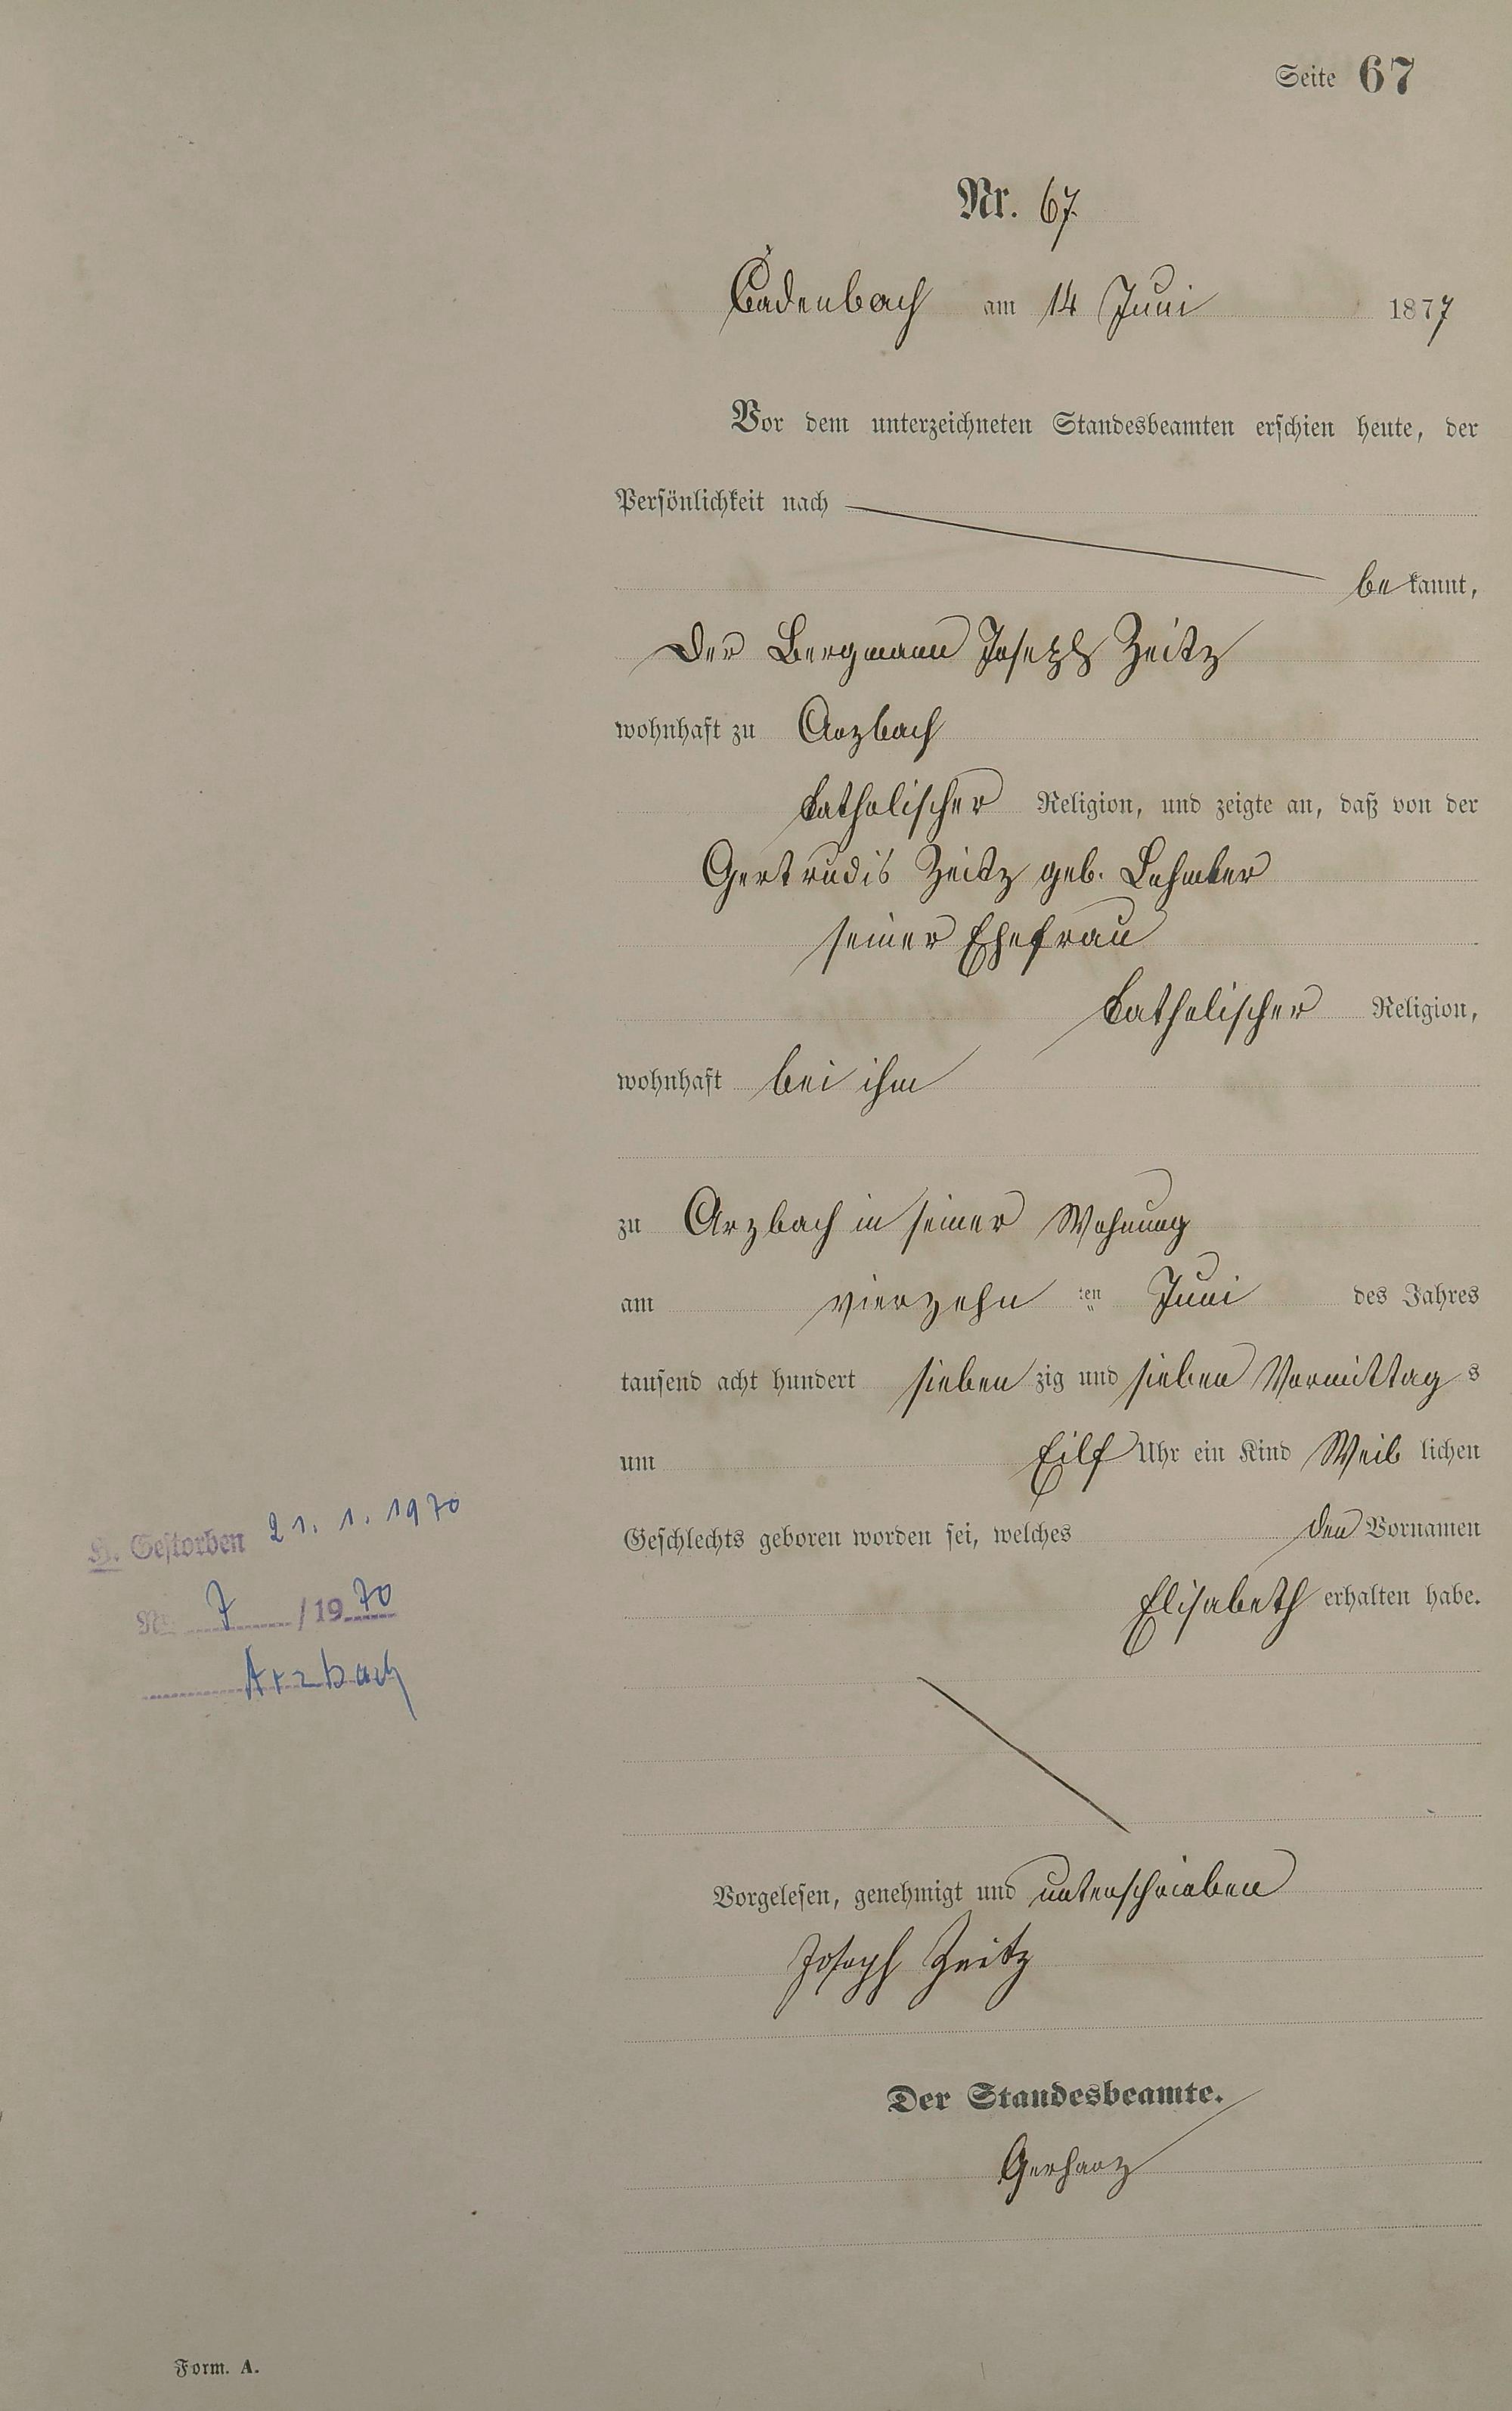 Seite 67
Nr. 67
Cadenbach am 14 Juni 1877
Vor dem unterzeichneten Standesbeamten erschien heute, der
Persönlichkeit nach
bekannt,
Der Bergmann Joseph Zeitz
wohnhaft zu Arzbach
katholischer Religion, und zeigte an, daß von der
Gertrudis Zeitz geb.
seiner Ehefrau
katholischer Religion,
wohnhaft bei ihm
zu Arzbach in seiner Wohnung
am vierzehn ten Juni des Jahres
tausend acht hundert sieben zig und sieben Vormittag s
um Eilf Uhr ein Kind Weib lichen
Geschlechts geboren worden sei, welches den Vornamen
Elisabeth erhalten habe.
Vorgelesen, genehmigt und unterschrieben
Joseph Zeitz
Der Standesbeamte.
Gerharz
H. Gestorben 21. 1. 1970
Nr. 7 / 1970
Arzbach
Form. A.